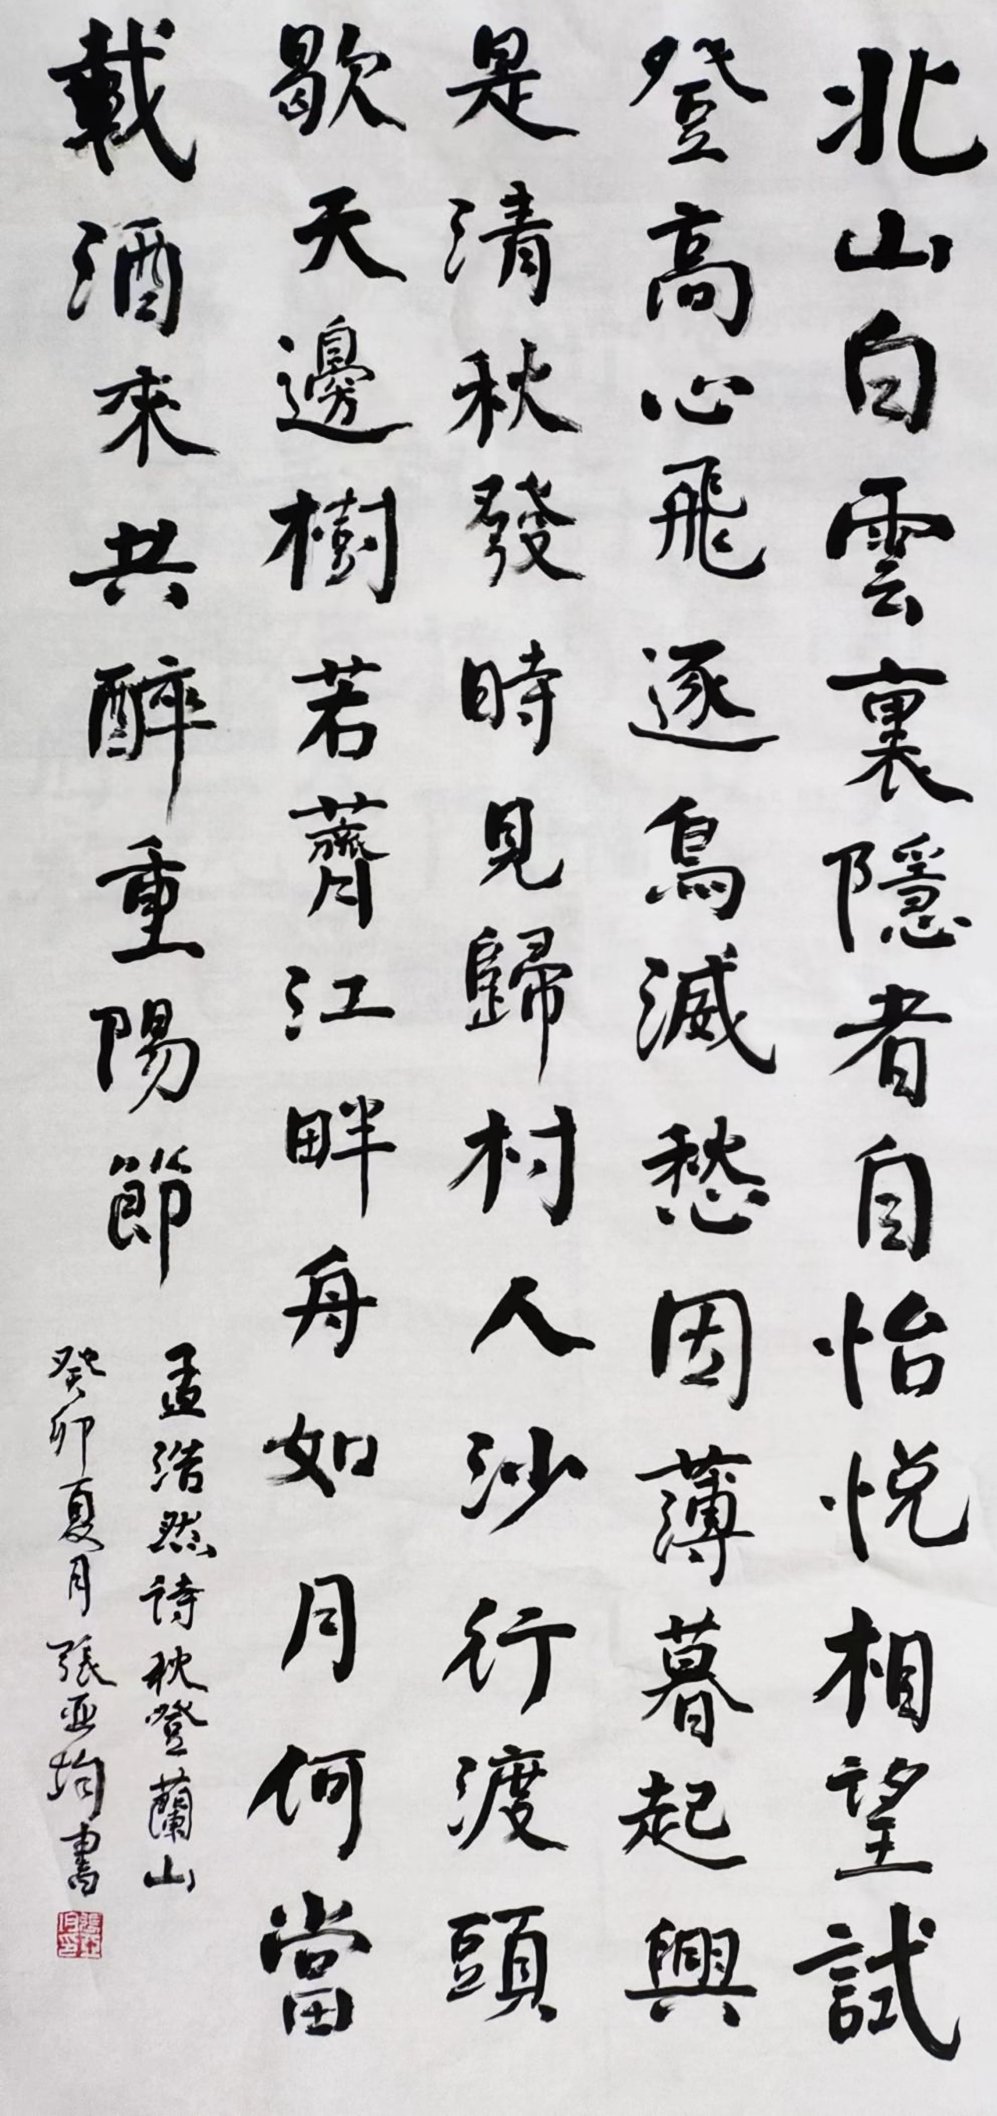 北山白雲裏隱者自怡悅相望試
登高心飛逐鳥滅愁因薄暮起興
是清秋發時見歸村人沙行渡頭
歇天邊樹若薺江畔舟如月何當
載酒來共醉重陽節
孟浩然詩秋登蘭山
癸卯夏月張亚均書